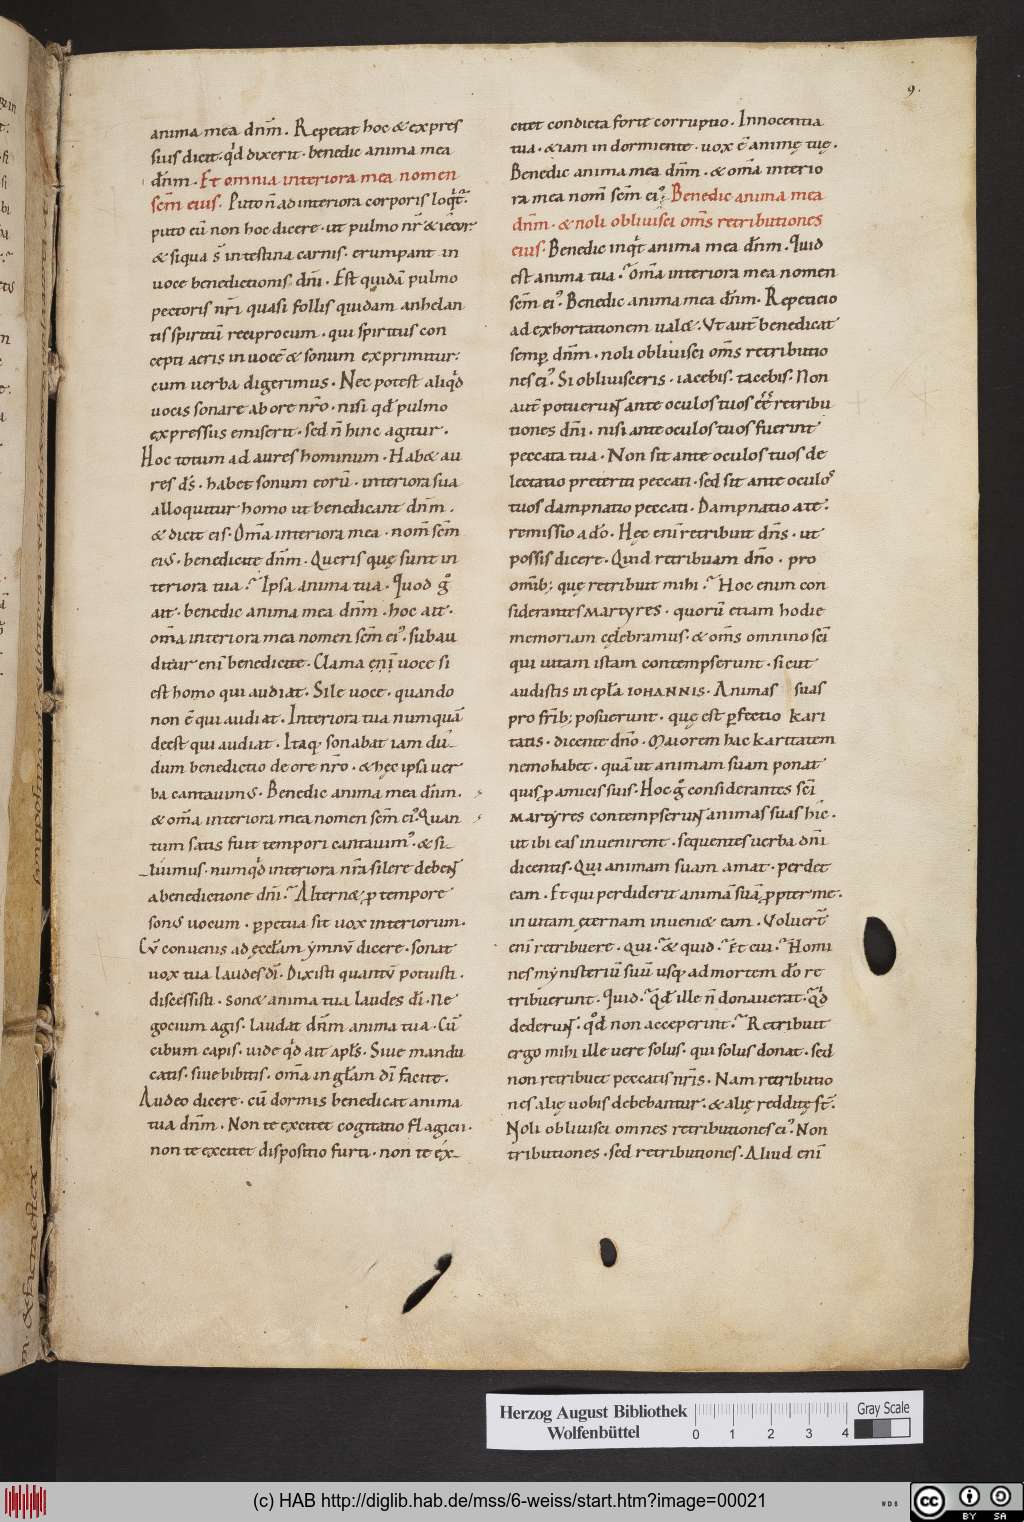 9.
anima mea dnm̄. Repetat hoc & expres
sius dicit. qd dixerit. benedic anima mea
dn̄m. Et omnia interiora mea nomen
scm̄ eius. Puto n̄ ad interiora corporis loqt̄.
puto eū non hoc dicere. ut pulmo nr̄ & iecor.
& siqua s̄ intestina carnis. erumpant in
uoce benedictionis dn̄i. Est quidā pulmo
pectoris nr̄i quasi follis quidam anhelan
tis spiritū reciprocum. qui spiritus con
cepti aeris in uocē & sonum exprimitur.
cum uerba digerimus. Nec potest aliqd
uocis sonare ab ore nr̄o. nisi qd pulmo
expressus emiserit. sed n̄ hinc agitur.
Hoc totum ad aures hominum. Hab& au
res ds̄. habet sonum eorū. interiora sua
alloquitur homo ut benedicant dn̄m.
& dicit eis. Om̄a interiora mea. nom̄ scm̄
eius. benedicite dn̄m. Queris quę sunt in
teriora tua? Ipsa anima tua. Quod g
ait. benedic anima mea dn̄m. hoc ait.
om̄a interiora mea nomen scm̄ ei. subau
ditur eni benedicite. Clama eni uoce si
est homo qui audiat. Sile uoce. quando
non ē qui audiat. Interiora tua numquā
deest qui audiat. Itaq sonabat iam dū
dum benedictio de ore nr̄o. & hęc ipsa uer
ba cantauimus. Benedic anima mea dn̄m.
& om̄a interiora mea nomen scm̄ ei. Quan
tum satis fuit tempori cantauim. & si
luimus. numqd interiora nr̄a silere debent
a benedictione dn̄i? Altern& p tempore
sonus uocum. ppetua sit uox interiorum.
Cū conuenis ad ęccłam ymnū dicere. sonat
uox tua laudes dī. Dixisti quantū potuisti.
discessisti. son& anima tua laudes dī. Ne
gocium agis. laudat dn̄m anima tua. Cū
cibum capis. uide qd ait apłs. Siue mandu
catis. siue bibitis. om̄a in głam dī facite.
Audeo dicere. cū dormis benedicat anima
tua dnm̄. Non te excitet cogitatio flagicii.
non te excitet dispositio furti. non te ex
citet condicta forte corruptio. Innocentia
tua. &iam in dormiente. uox ē animę tuę.
Benedic anima mea dn̄m. & om̄a interio
ra mea nom̄ scm̄ ei. Benedic anima mea
dnm̄. & noli obliuisci om̄s retributiones
eius. Benedic inqt anima mea dn̄m. Quid
est anima tua? om̄a interiora mea nomen
scm̄ ei. Benedic anima mea dn̄m. Repeticio
ad exhortationem ual&. Ut aut̄ benedicat
semp dn̄m. noli obliuisci om̄s retributio
nes ei. Si obliuisceris. iacebis. tacebis. Non
aut̄ potuerunt ante oculos tuos ēē retribu
tiones dn̄i. nisi ante oculos tuos fuerint
peccata tua. Non sit ante oculos tuos de
lectatio preteriti peccati. sed sit ante oculos
tuos dampnatio peccati. Dampnatio a te.
remissio a do. Hęc eni retribuit dn̄s. ut
possis dicere. Quid retribuam dn̄o. pro
omib; quę retribuit mihi? Hoc enim con
siderantes martyres. quorū etiam hodie
memoriam cęlebramus. & om̄s omnino sci
qui uitam istam contempserunt. sicut
audistis in epła IOHANNIS. Animas suas
pro frib; posuerunt. quę est pfectio kari
tatis. dicente dn̄o. Maiorem hac karitatem
nemo habet. quā ut animam suam ponat
quis p amicis suis. Hoc g considerantes sci
martyres contempserunt animas suas hic.
ut ibi eas inuenirent. sequentes uerba dn̄i
dicentis. Qui animam suam amat. perdet
eam. Et qui perdiderit animā suā ppter me.
in uitam ęternam inueni& eam. Voluert̄
eni retribuere. qui? & quid? Et cui? Homi
nes mynisteriū suū usq ad mortem do re
tribuerunt. Quid? qd ille n̄ donauerat? qd
dederunt. qd non acceperint? Retribuit
ergo mihi ille uere solus. qui solus donat. sed
non retribuet peccatis nr̄is. Nam retributio
nes alię uobis debebantur. & alię redditę st̄.
Noli obliuisci omnes retributiones ei. Non
tributiones. sed retributiones. Aliud eni
Herzog August Bibliothek
Wolfenbüttel
0 1 2 3 4
Gray Scale
(c) HAB http://diglib.hab.de/mss/6-weiss/start.htm?image=00021
WDB
cc BY SA